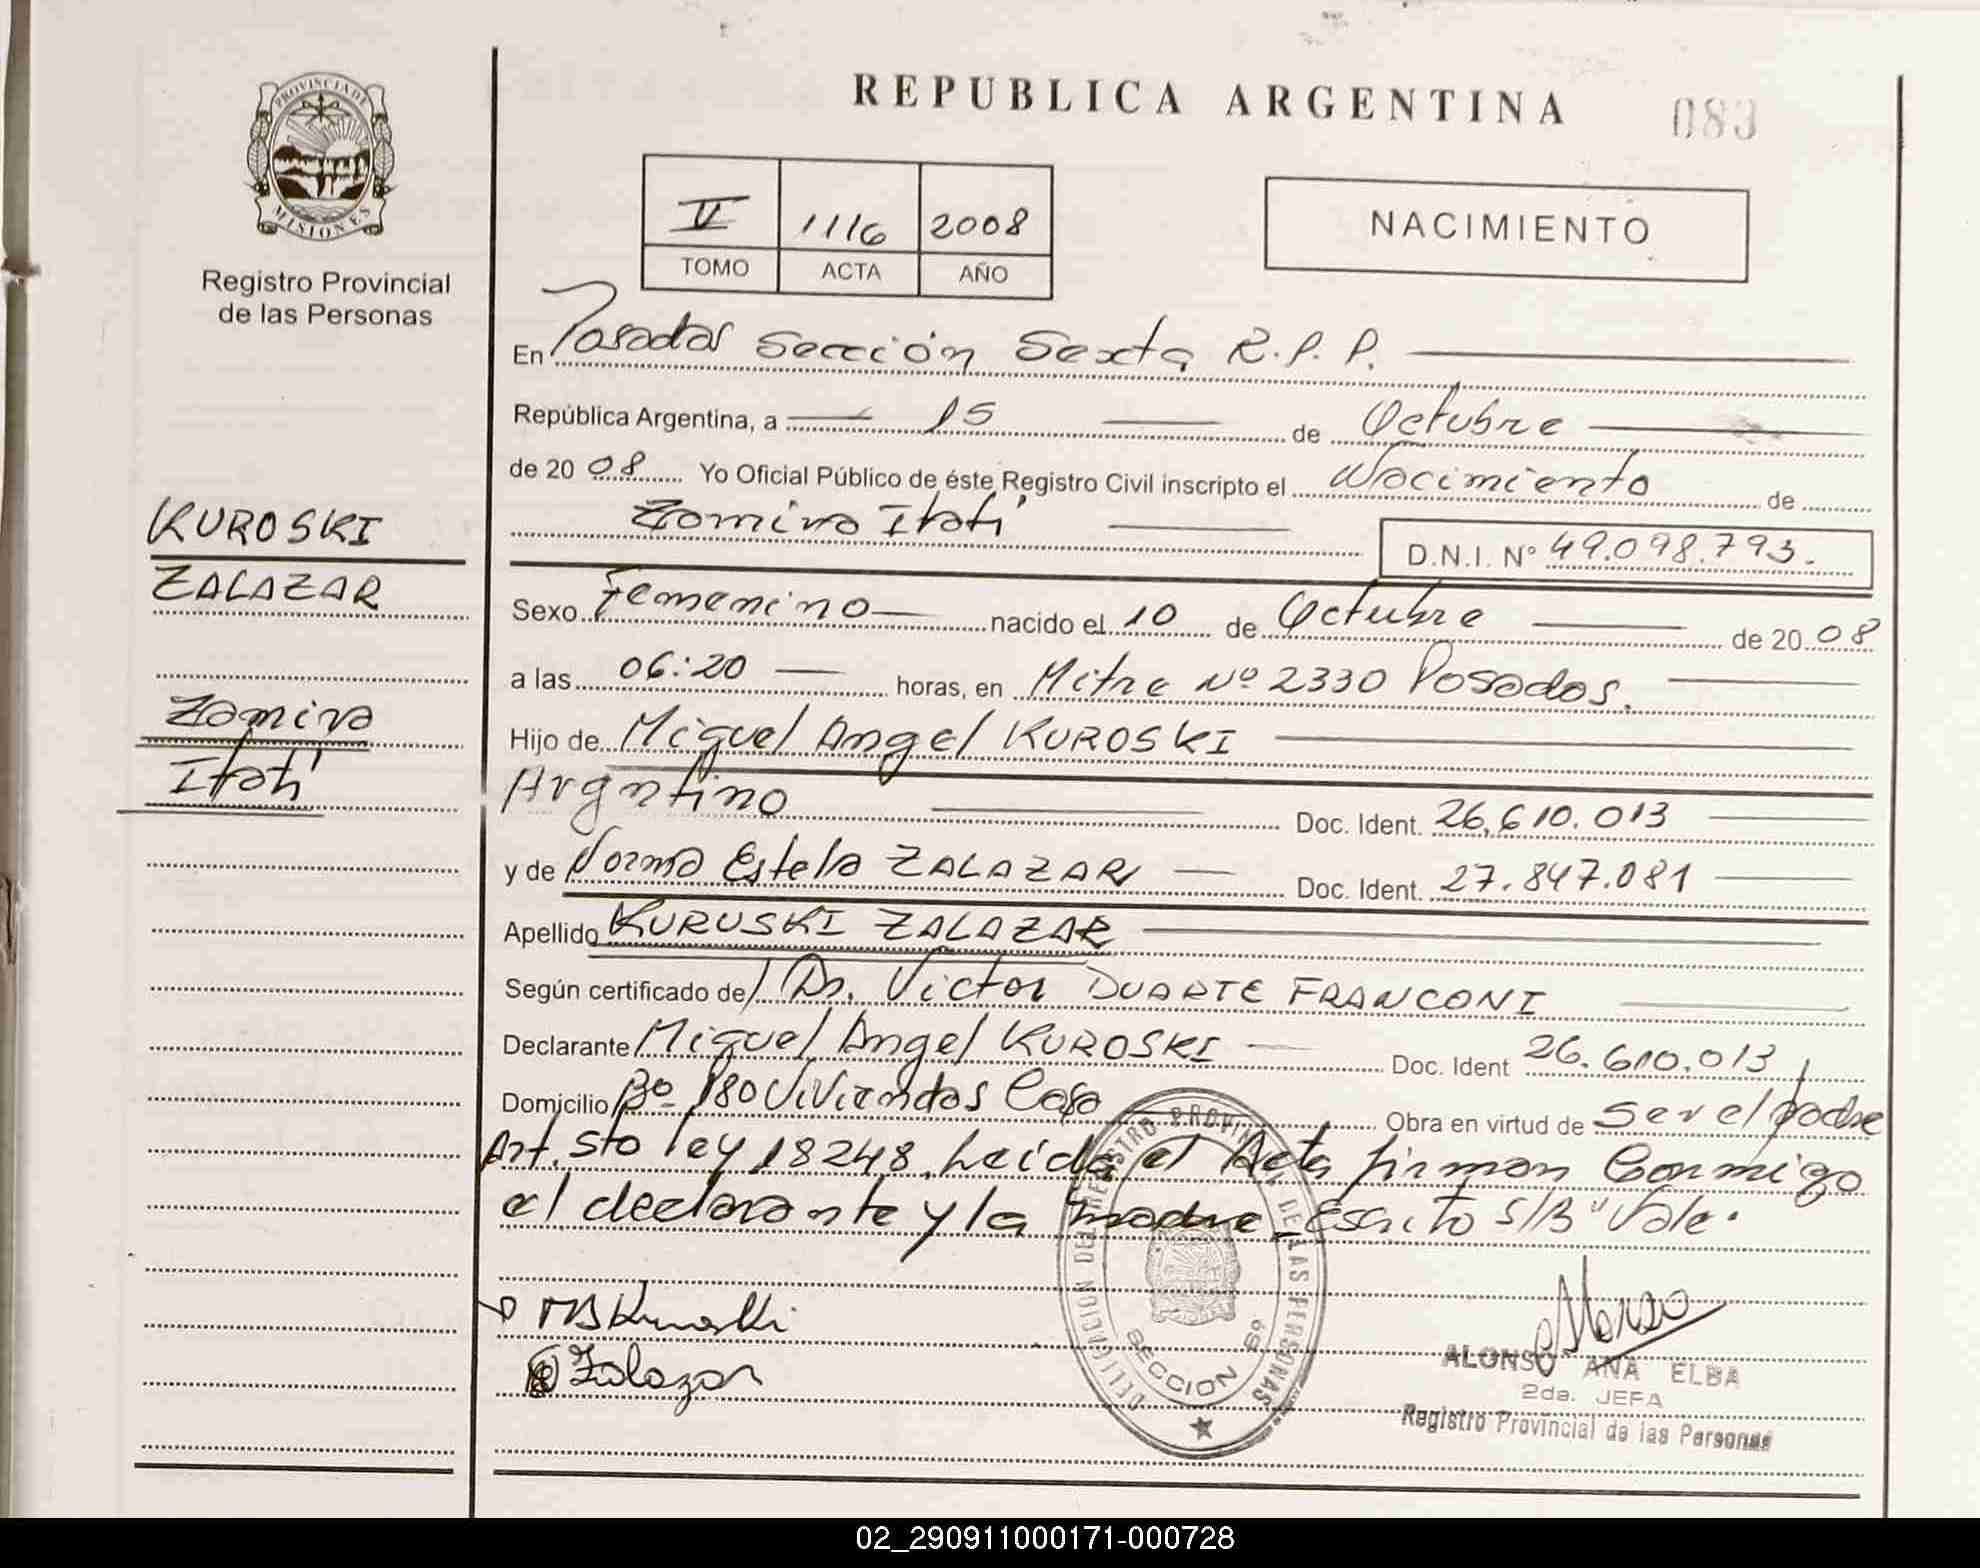 REPUBLICA ARGENTINA
083
PROVINCIA DE
MISIONES
Registro Provincial
de las Personas
V 1116 2008
TOMO ACTA AÑO
NACIMIENTO
En Posadas Sección Sexta R.P.P.
República Argentina, a 15 de Octubre
de 2008 Yo Oficial Público de éste Registro Civil inscripto el Nacimiento de
Zamira Itatí D.N.I. Nº 49.098.793.
KUROSKI
ZALAZAR
Zamira
Itatí
Sexo Femenino nacido el 10 de Octubre de 2008
a las 06:20 horas, en Mitre Nº 2330 Posadas.
Hijo de Miguel Angel KUROSKI
Argntino Doc. Ident. 26.610.013
y de Norma Estela ZALAZAR Doc. Ident. 27.847.081
Apellido KUROSKI ZALAZAR
Según certificado de Dr. Victor DUARTE FRANCONI
Declarante Miguel Angel KUROSKI Doc. Ident 26.610.013
Domicilio Bº 180 Viviendas Casa Obra en virtud de Ser el padre
Art. 5to ley 18248. Leida el Acta firman Conmigo
el declarante y la madre. Escrito S/B "Vale.
Zalazar
DELEGACION DEL REGISTRO PROVINCIAL DE LAS PERSONAS
SECCION 6ª
ALONSO ANA ELBA
2da. JEFA
Registro Provincial de las Personas
02_290911000171-000728